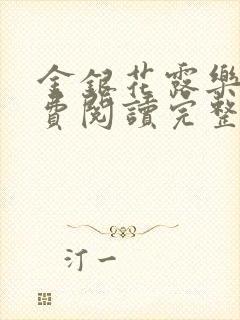 金銀花露樂
費閱讀完整
汀一